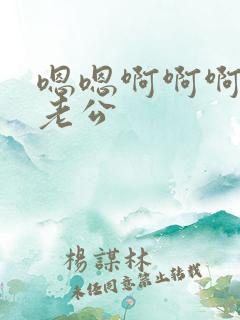 嗯嗯啊啊啊
老公
楊謀林
未任同意禁止转载